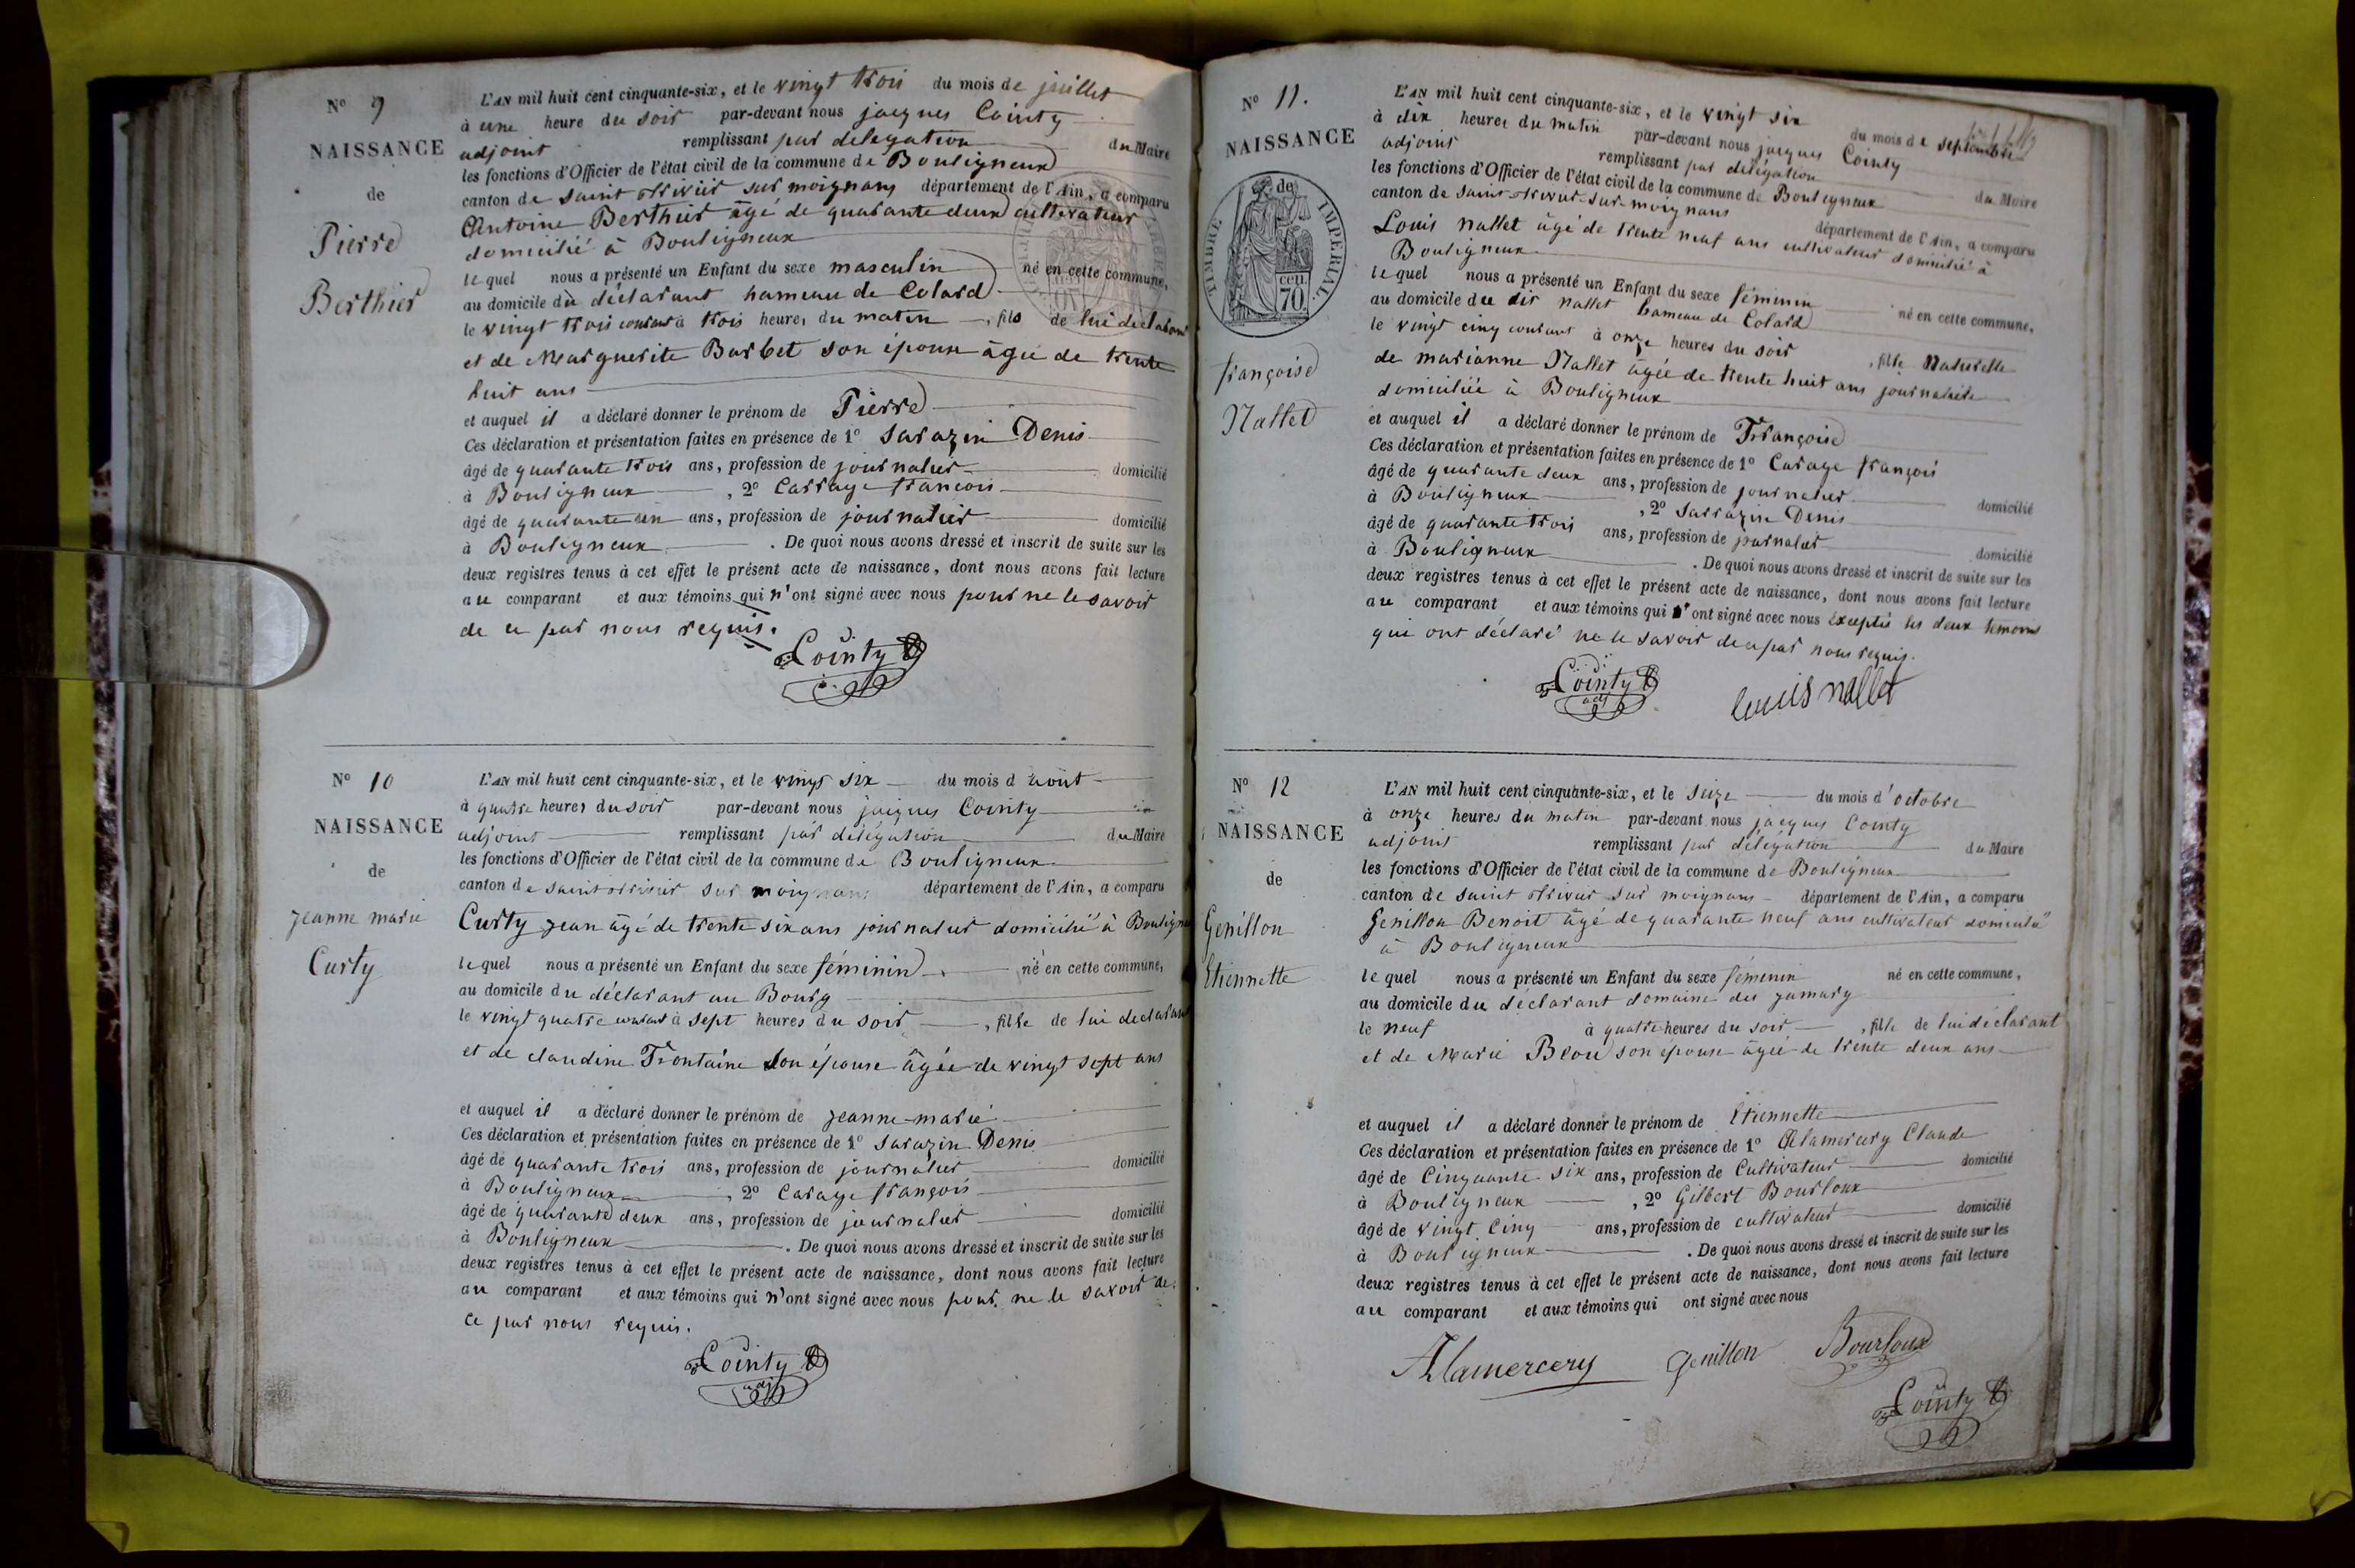 Nº 9
NAISSANCE
de
Pierre
Berthier
L'AN mil huit cent cinquante-six, et le vingt trois du mois de juillet
à une heure du soir par-devant nous jacques Cointy
adjoint remplissant par delegation du Maire
les fonctions d'Officier de l'état civil de la commune de Bouligneux
canton de saint trivier sur moignans département de l'Ain, a comparu
Antoine Berthier âgé de quarante deux cultivateur
domicilié à Bouligneux
lequel nous a présenté un Enfant du sexe masculin né en cette commune,
au domicile du déclarant hameau de Colard
le vingt trois courant à trois heures du matin, fils de lui declarant
et de Marguerite Barbet son epouse âgée de trente
huit ans
et auquel il a déclaré donner le prénom de Pierre
Ces déclaration et présentation faites en présence de 1º Sarazin Denis
âgé de quarante trois ans, profession de journalier domicilié
à Bouligneux, 2º Carrage francois
âgé de quarante un ans, profession de journalier domicilié
à Bouligneux. De quoi nous avons dressé et inscrit de suite sur les
deux registres tenus à cet effet le présent acte de naissance, dont nous avons fait lecture
au comparant et aux témoins qui n'ont signé avec nous pour ne le savoir
de ce par nous requis.
Cointy
Nº 10
NAISSANCE
de
jeanne marie
Curty
L'AN mil huit cent cinquante-six, et le vingt six du mois d'août
à quatre heures du soir par-devant nous jacques Cointy
adjoint remplissant par délégation du Maire
les fonctions d'Officier de l'état civil de la commune de Bouligneux
canton de saint trivier sur moignans département de l'Ain, a comparu
Curty jean âgé de trente six ans journalier domicilié à Bouligneux
lequel nous a présenté un Enfant du sexe féminin né en cette commune,
au domicile du déclarant au Bourg
le vingt quatre courant à sept heures du soir, fille de lui declarant
et de claudine Frontaine son épouse âgée de vingt sept ans
et auquel il a déclaré donner le prénom de jeanne-marie
Ces déclaration et présentation faites en présence de 1º Sarazin Denis
âgé de quarante trois ans, profession de journalier domicilié
à Bouligneux, 2º Carage françois
âgé de quarante deux ans, profession de journalier domicilié
à Bouligneux. De quoi nous avons dressé et inscrit de suite sur les
deux registres tenus à cet effet le présent acte de naissance, dont nous avons fait lecture
au comparant et aux témoins qui n'ont signé avec nous pour ne le savoir de
ce par nous requis.
Cointy
adj
Nº 11.
NAISSANCE
de
TIMBRE IMPERIAL
cen.
70
françoise
Nallet
L'AN mil huit cent cinquante-six, et le vingt six du mois de septembre
à dix heures du matin par-devant nous jacques Cointy
adjoint remplissant par délégation du Maire
les fonctions d'Officier de l'état civil de la commune de Bouligneux
canton de saint-trivier-sur-moignans département de l'Ain, a comparu
Louis nallet âgé de trente neuf ans cultivateur domicilié à
Bouligneux
lequel nous a présenté un Enfant du sexe féminin né en cette commune,
au domicile du dit nallet hameau de Colard
le vingt cinq courant à onze heures du soir, fille Naturelle
de marianne Nallet âgée de trente huit ans journalière
domiciliée à Bouligneux
et auquel il a déclaré donner le prénom de Françoise
Ces déclaration et présentation faites en présence de 1º Carage françois
âgé de quarante deux ans, profession de journalier domicilié
à Bouligneux, 2º Sarrazin Denis
âgé de quarante trois ans, profession de journalier domicilié
à Bouligneux. De quoi nous avons dressé et inscrit de suite sur les
deux registres tenus à cet effet le présent acte de naissance, dont nous avons fait lecture
au comparant et aux témoins qui ont signé avec nous exceptés les deux témoins
qui ont déclaré ne le savoir de ce par nous requis.
Cointy
adj
louis nallet
Nº 12
NAISSANCE
de
Genillon
Etiennette
L'AN mil huit cent cinquante-six, et le seize du mois d'octobre
à onze heures du matin par-devant nous jacques Cointy
adjoint remplissant par délégation du Maire
les fonctions d'Officier de l'état civil de la commune de Bouligneux
canton de saint trivier sur moignans département de l'Ain, a comparu
Genillon Benoit âgé de quarante neuf ans cultivateur domicilié
à Bouligneux
lequel nous a présenté un Enfant du sexe féminin né en cette commune,
au domicile du déclarant domaine des
le neuf à quatre heures du soir, fille de lui déclarant
et de Marie son épouse âgée de trente deux ans
et auquel il a déclaré donner le prénom de Etiennette
Ces déclaration et présentation faites en présence de 1º Alamercery Claude
âgé de Cinquante six ans, profession de Cultivateur domicilié
à Bouligneux, 2º Gilbert Bourloux
âgé de vingt Cinq ans, profession de cultivateur domicilié
à Bouligneux. De quoi nous avons dressé et inscrit de suite sur les
deux registres tenus à cet effet le présent acte de naissance, dont nous avons fait lecture
au comparant et aux témoins qui ont signé avec nous
Alamercery Genillon Bourloux
Cointy